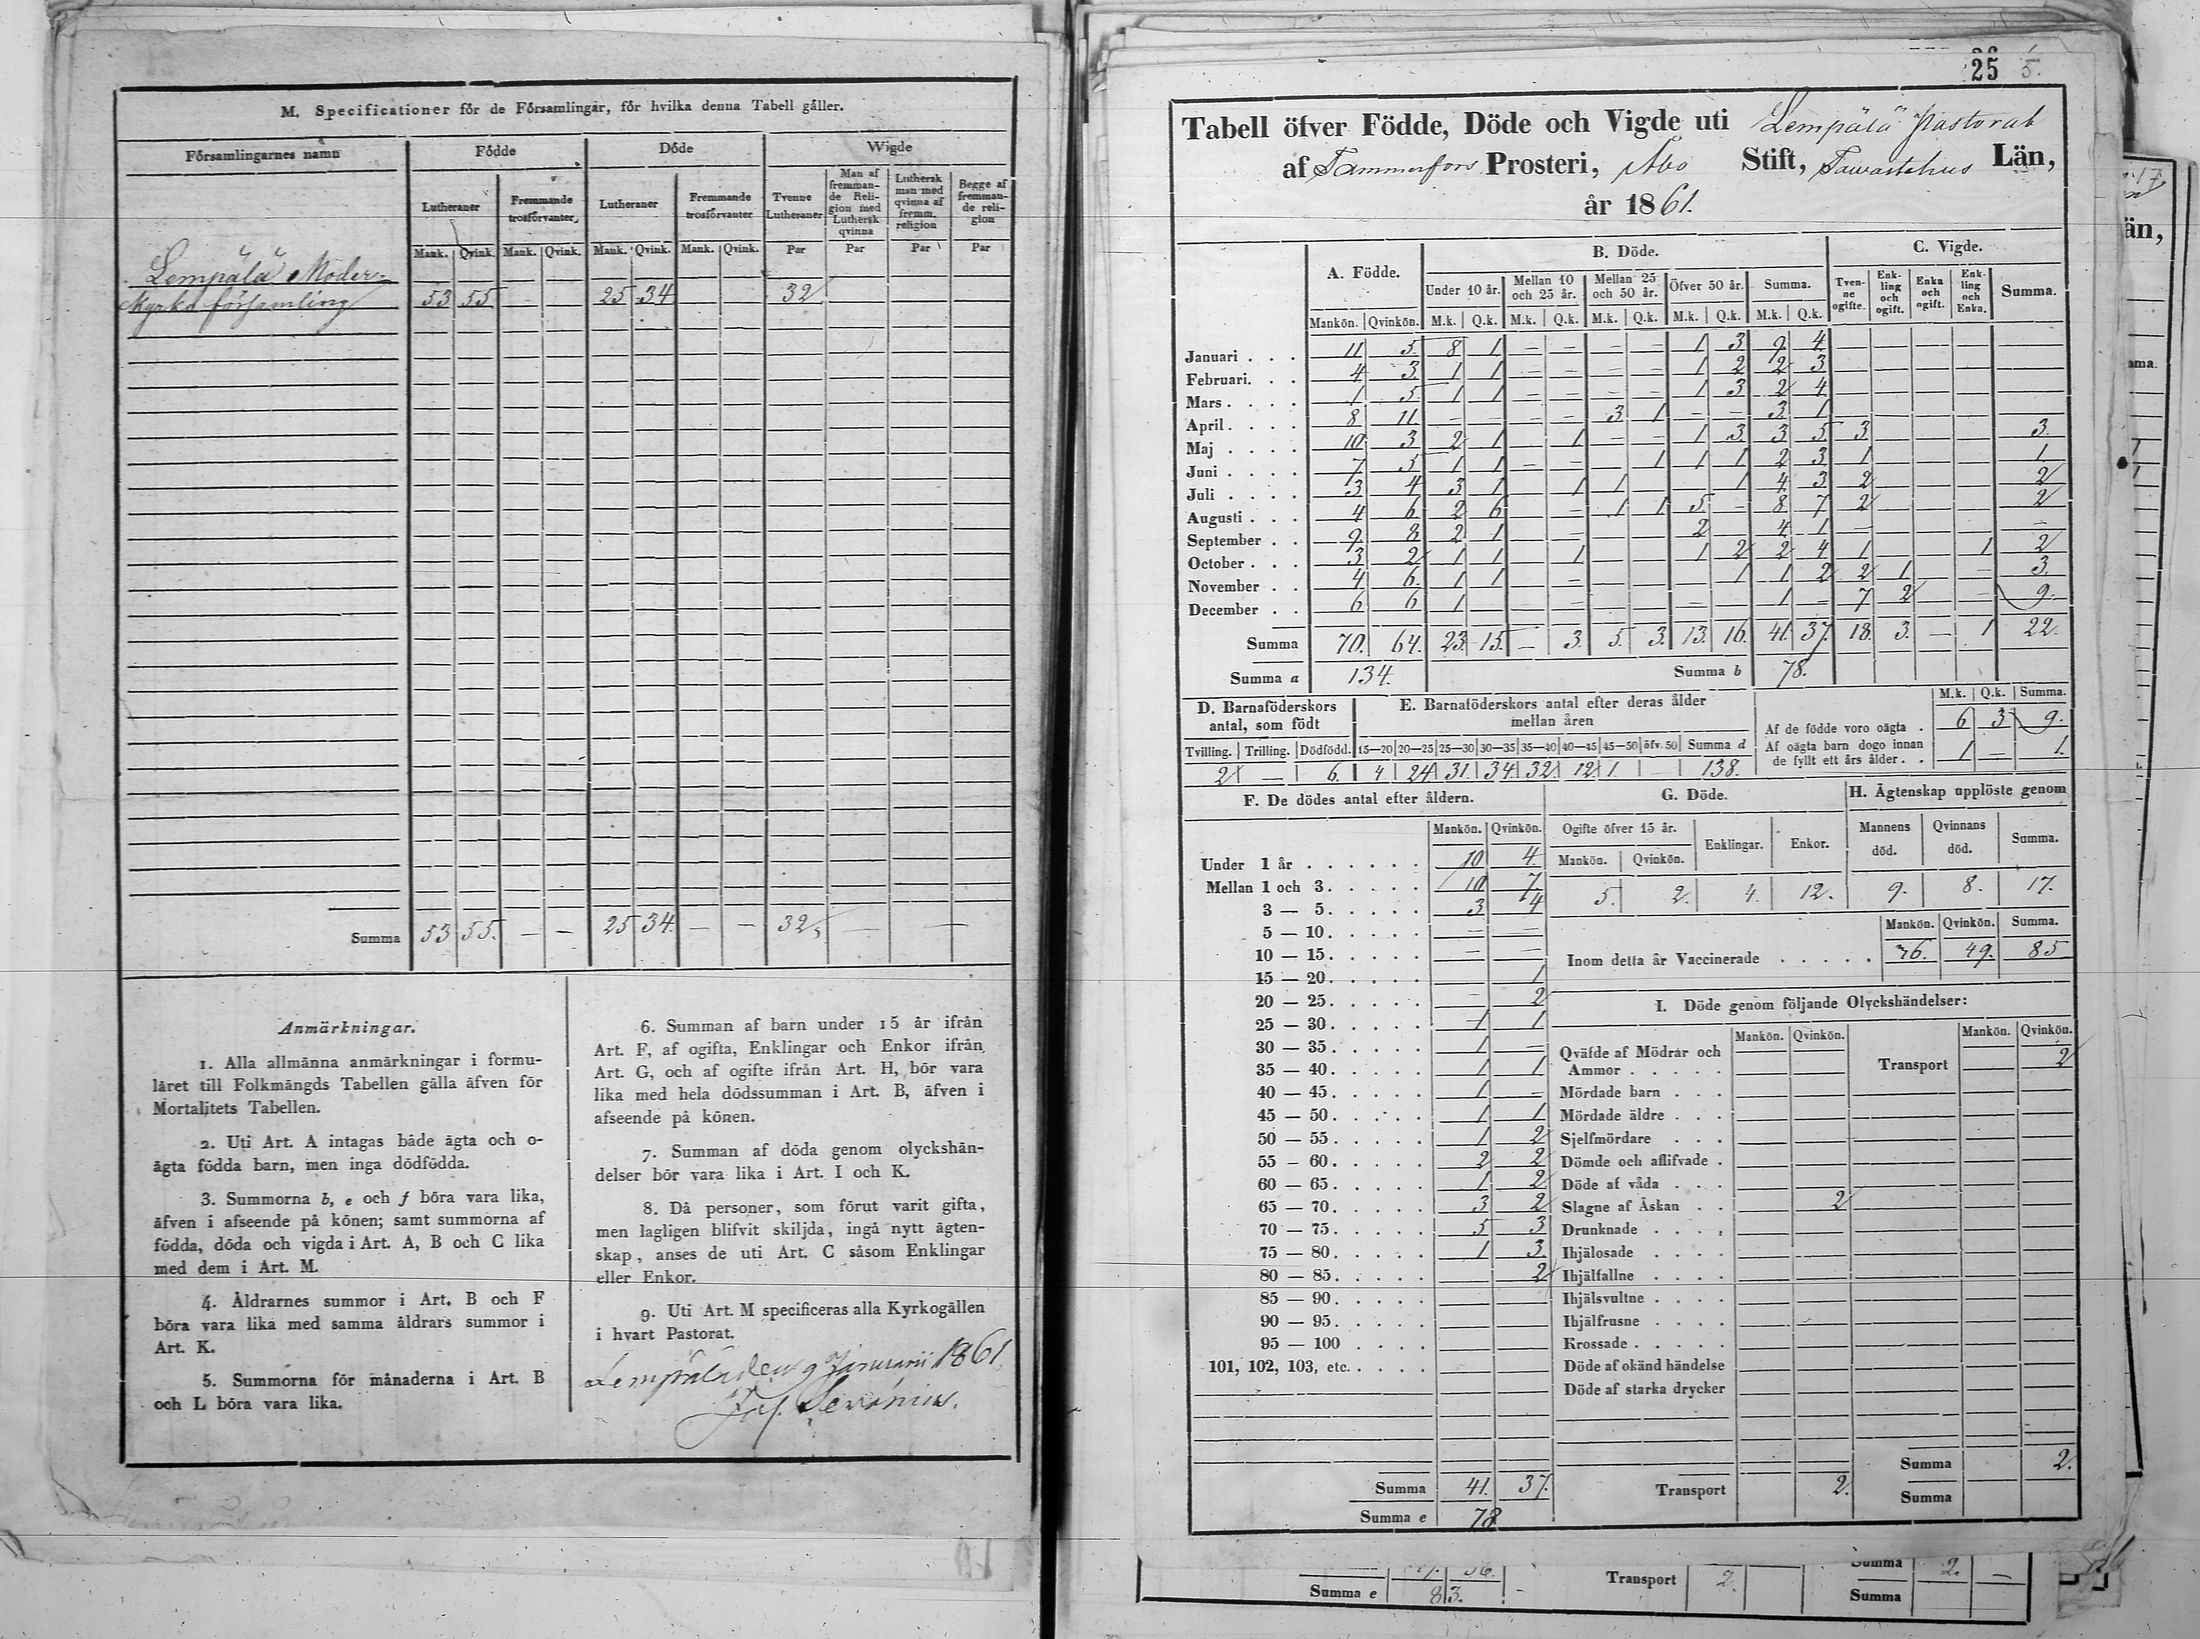 M. Specificationer för de Församlingar, för hvilka denna Tabell gäller.
Församlingarnes namn | Födde | Döde | Wigde
Lutheraner | Fremmande trosförvanter | Lutheraner | Fremmande trosförvanter | Tvenne Lutheraner | Man af fremmande Religion med Luthersk qvinna | Luthersk man med qvinna af fremm. religion | Begge af fremmande religion
Mank. | Qvink. | Mank. | Qvink. | Mank. | Qvink. | Mank. | Qvink. | Par | Par | Par | Par
Lempälä Moder-
kyrko församling 53 55 — — 25 34 — — 32
Summa 53 55. — — 25 34. — — 32. — —
Anmärkningar.
1. Alla allmänna anmärkningar i formu-
läret till Folkmängds Tabellen gälla äfven för
Mortalitets Tabellen.
2. Uti Art. A intagas både ägta och o-
ägta födda barn, men inga dödfödda.
3. Summorna b, e och f böra vara lika,
äfven i afseende på könen; samt summorna af
födda, döda och vigda i Art. A, B och C lika
med dem i Art. M.
4. Åldrarnes summor i Art. B och F
böra vara lika med samma åldrars summor i
Art. K.
5. Summorna för månaderna i Art. B
och L böra vara lika.
6. Summan af barn under 15 år ifrån
Art. F, af ogifta, Enklingar och Enkor ifrån
Art. G, och af ogifte ifrån Art. H, bör vara
lika med hela dödssumman i Art. B, äfven i
afseende på könen.
7. Summan af döda genom olyckshän-
delser bör vara lika i Art. I och K.
8. Då personer, som förut varit gifta,
men lagligen blifvit skiljda, ingå nytt ägten-
skap, anses de uti Art. C såsom Enklingar
eller Enkor.
9. Uti Art. M specificeras alla Kyrkogällen
i hvart Pastorat.
Lempälä den 9 Januarii 1861
25 5.
Tabell öfver Födde, Döde och Vigde uti Lempälä Pastorat
af Tammerfors Prosteri, Åbo Stift, Tawastehus Län,
år 1861.
A. Födde. | B. Döde. | C. Vigde.
Under 10 år. | Mellan 10 och 25 år. | Mellan 25 och 50 år. | Öfver 50 år. | Summa. | Tvenne ogifte. | Enkling och ogift. | Enka och ogift. | Enkling och Enka. | Summa.
Mankön. | Qvinkön. | M.k. | Q.k. | M.k. | Q.k. | M.k. | Q.k. | M.k. | Q.k. | M.k. | Q.k.
Januari . . . 11 5. 8 1 — — — — 1 3 9 4
Februari. . . 4 3 1 1 — — — — 1 2 2 3
Mars . . . . 1 5 1 1 — — — — 1 3 2 4
April . . . . 8 11 — — — — 3 1 — — 3 1
Maj . . . . 10 3 2 1 — 1 — — 1 3 3 5 3 — — — 3.
Juni . . . . 7 5 1 1 — — — 1 1 1 2 3 1 — — — 1
Juli . . . . 3 4 3 1 — 1 1 — — 1 4 3 2 — — — 2
Augusti . . . 4 6 2 6 — — 1 1 5 — 8 7 2 — — — 2
September . . 9 8 2 1 — — — — 2 — 4 1 — — — — —
October . . . 3 2 1 1 — 1 — — 1 2 2 4 1 — — 1 2
November . . 4 6 1 1 — — — — — 1 1 2 2 1 — — 3.
December . . 6 6 1 — — — — — — — 1 — 7 2 — — 9.
Summa 70. 64. 23 15. — 3. 5. 3. 13. 16. 41. 37. 18. 3. — 1 22.
Summa a 134. Summa b 78.
D. Barnaföderskors antal, som födt | E. Barnaföderskors antal efter deras ålder mellan åren | M.k. | Q.k. | Summa.
Tvilling. | Trilling. | Dödfödd. | 15—20 | 20—25 | 25—30 | 30—35 | 35—40 | 40—45 | 45—50 | öfv. 50 | Summa d
2 — 6. 4 24 31. 34. 32. 12. 1. — 138.
Af de födde voro oägta . 6 3 9.
Af oägta barn dogo innan
de fyllt ett års ålder . . 1 — 1.
F. De dödes antal efter åldern.
Mankön. | Qvinkön.
Under 1 år . . . . . . 10 4.
Mellan 1 och 3. . . . . 10 7
3 — 5. . . . . 3 4
5 — 10. . . . . — —
10 — 15. . . . . — —
15 — 20. . . . . 1
20 — 25. . . . . — 2
25 — 30. . . . . 1 1
30 — 35. . . . . 1 —
35 — 40. . . . . 1 1
40 — 45. . . . . 1 —
45 — 50. . . . . 1 1
50 — 55. . . . . 1 2
55 — 60. . . . . 2 2
60 — 65. . . . . 1 2
65 — 70. . . . . 3 2
70 — 75. . . . . 5 3
75 — 80. . . . . 1 3.
80 — 85. . . . . 2
85 — 90. . . . .
90 — 95. . . . .
95 — 100 . . . .
101, 102, 103, etc. . . . .
Summa 41. 37.
Summa e 78
G. Döde.
Ogifte öfver 15 år. | Enklingar. | Enkor.
Mankön. | Qvinkön.
5. 2. 4. 12.
H. Ägtenskap upplöste genom
Mannens död. | Qvinnans död. | Summa.
9. 8. 17.
Mankön. | Qvinkön. | Summa.
Inom detta år Vaccinerade . . . . . 36. 49. 85
I. Döde genom följande Olyckshändelser:
Mankön. | Qvinkön. | Mankön. | Qvinkön.
Qväfde af Mödrar och
Ammor . . . . . Transport 2
Mördade barn . . .
Mördade äldre . . .
Sjelfmördare . . .
Dömde och aflifvade .
Döde af våda . . .
Slagne af Åskan . . 2
Drunknade . . . .
Ihjälosade . . . .
Ihjälfallne . . . .
Ihjälsvultne . . . .
Ihjälfrusne . . . .
Krossade . . . . .
Döde af okänd händelse
Döde af starka drycker
Summa 2.
Transport 2. Summa
Summa e 83. Transport 2. Summa 2. —
Summa